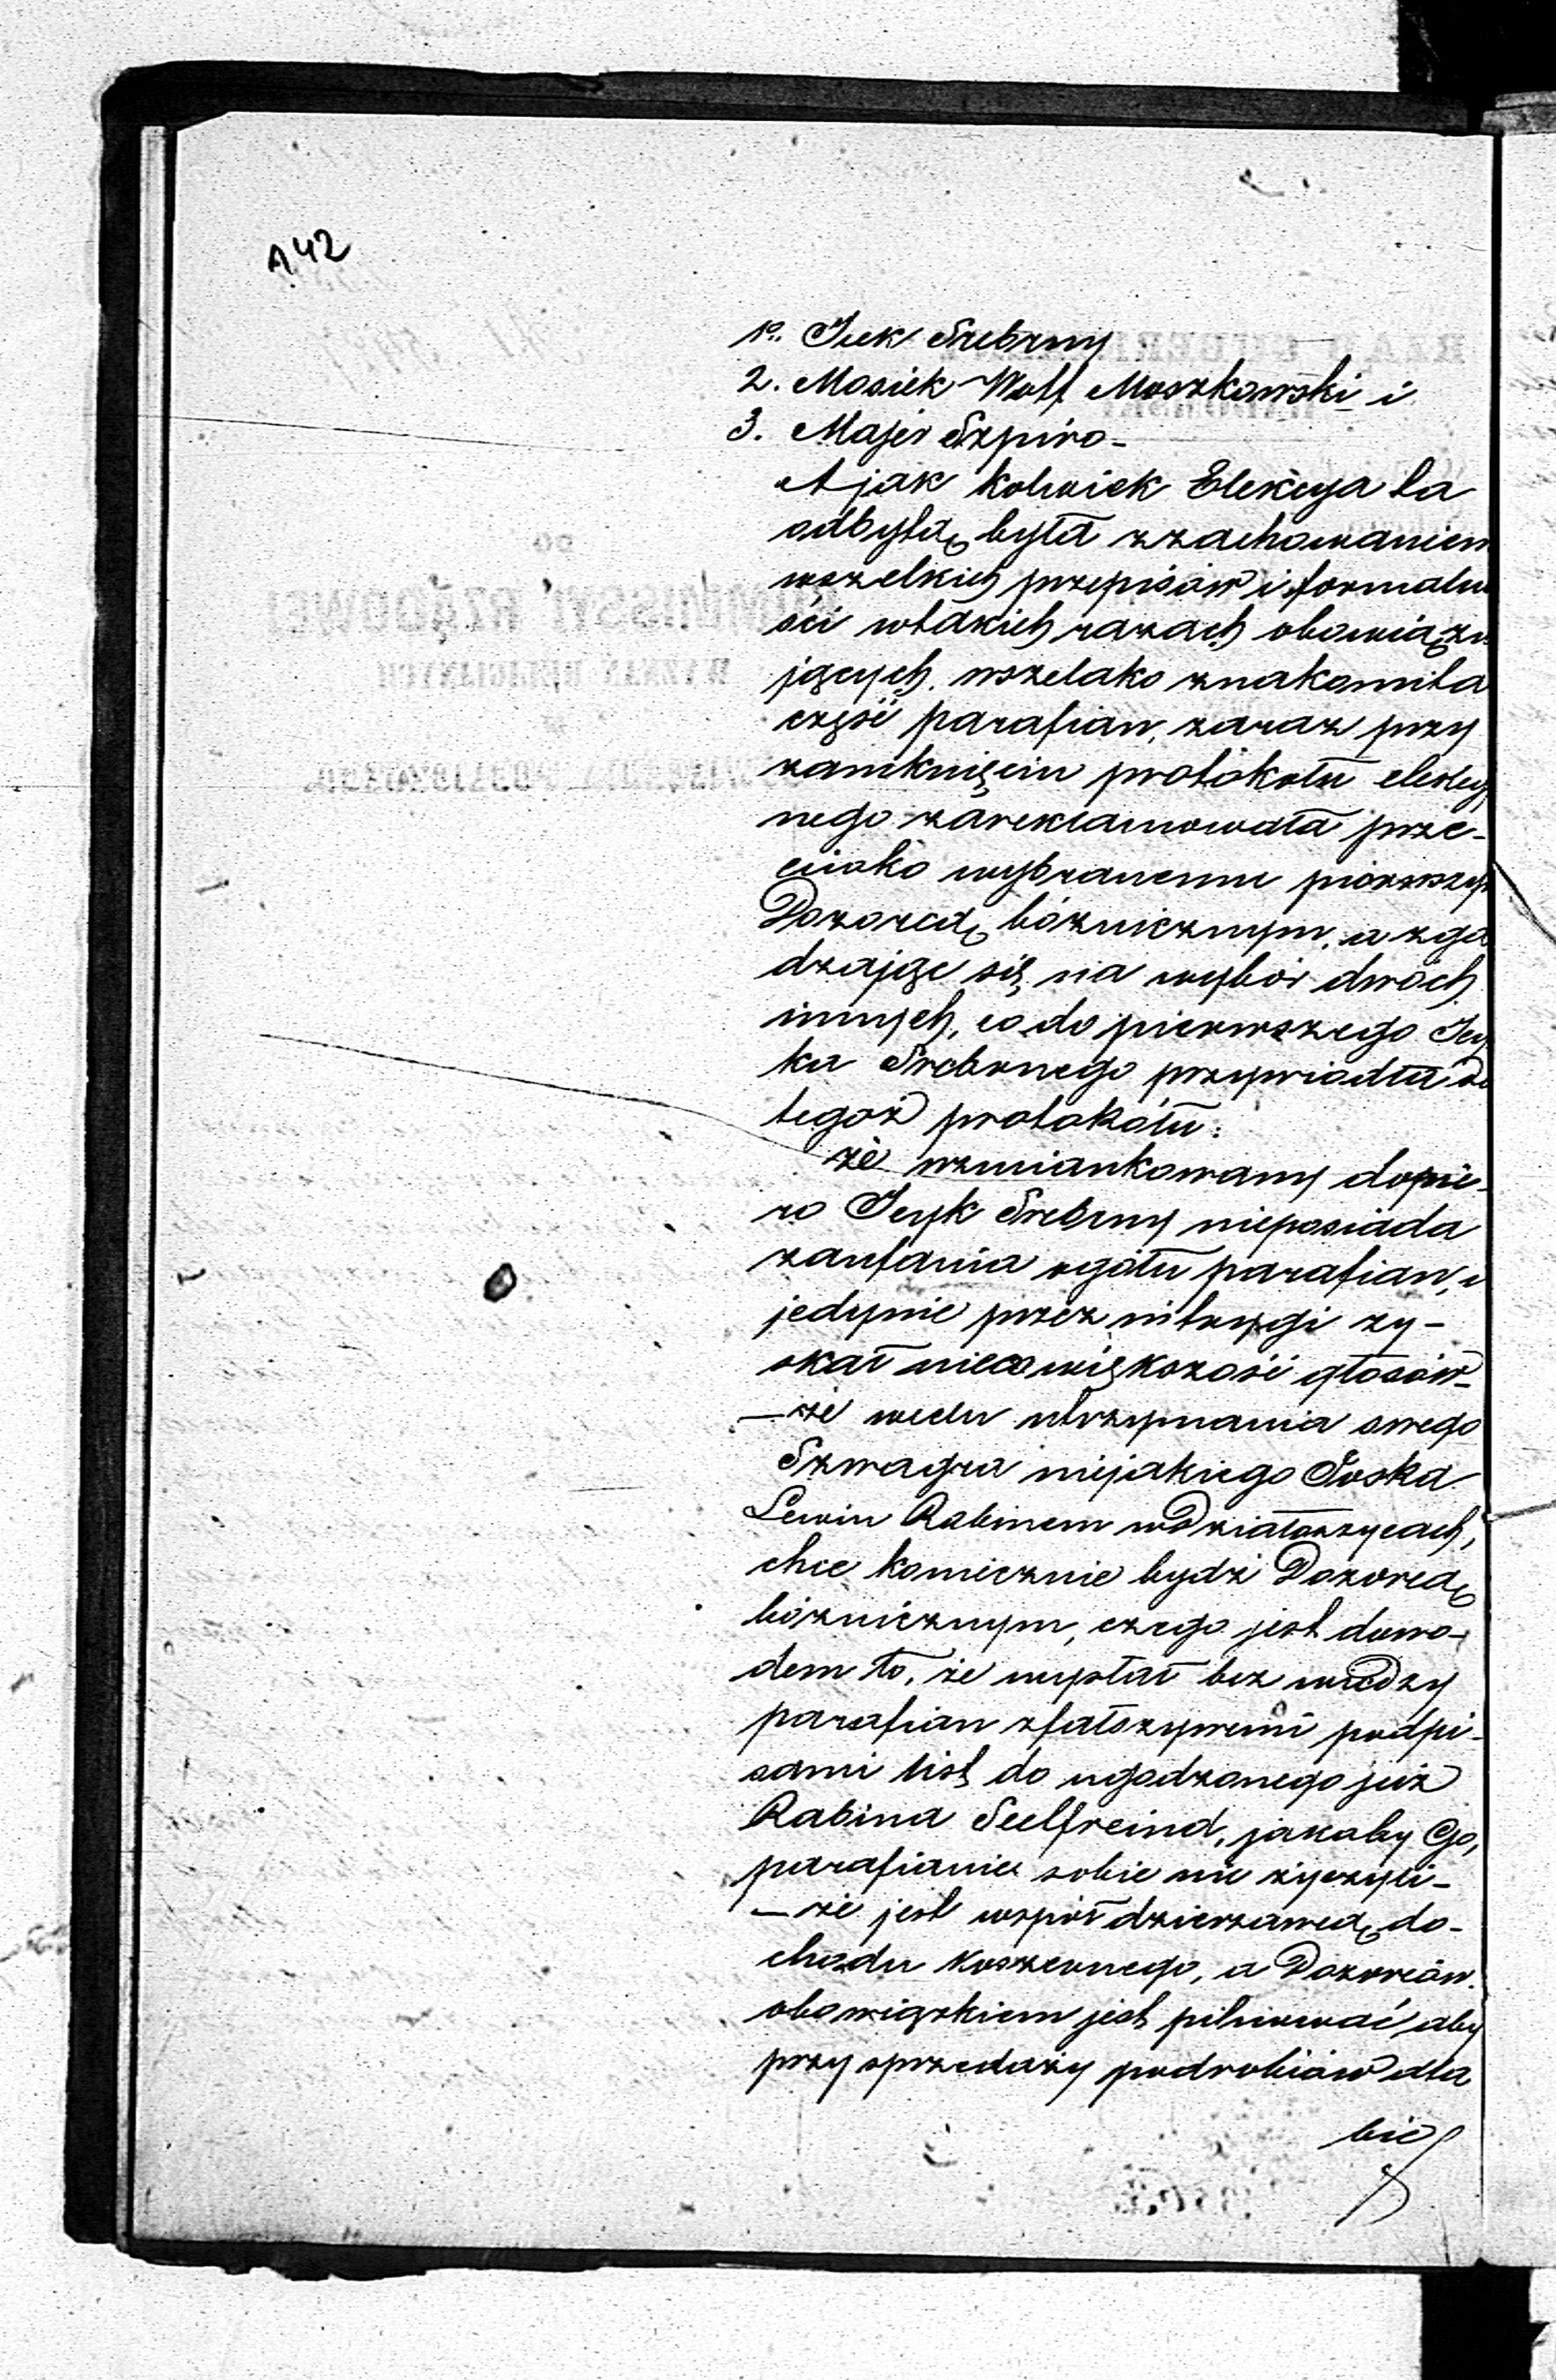 142
1o. Icek Srebrny
2. Mosiek Wolf Moszkowski i
3. Majer Szpiro -
A jak kolwiek Elekcya ta
odbytą byłа z zachowaniem
wszelkich przepisów i formalno
ści w takich razach obowiązu
jących. wszelako znakomita
część parafian, zaraz przy
zamknięciu protokołu elekcyj
nego zareklamowała prze-
ciwko wybranemu pierwszym
Dozorcą bóżnicznym, a zga
dzając się na wybór dwóch
innych, co do pierwszego Icy
ka Srebrnego przywiodła do
tegoż protokołu:
że wzmiankowany dopie-
ro Icyk Srebrny nieposiada
zaufania ogółu parafian, i
jedynie przez intrygi zy-
skał nieco większość głosów -
— że w celu utrzymania swego
Szwagra niejakiego Joska
Lewin Rabinem w Działoszycach,
chce koniecznie bydź Dozorcą
bóżnicznym, czego jest dowo-
dem to, że wysłał bez wiedzy
parafian z fałszywemi podpi-
sami list do ugodzonego już
Rabina Seelfreind, jakoby Go,
parafianie sobie nie życzyli -
— że jest współdzierżawcą do-
chodu koszernego, a Dozorców
obowiązkiem jest pilnować aby
przy sprzedaży podrobiów dla
bie